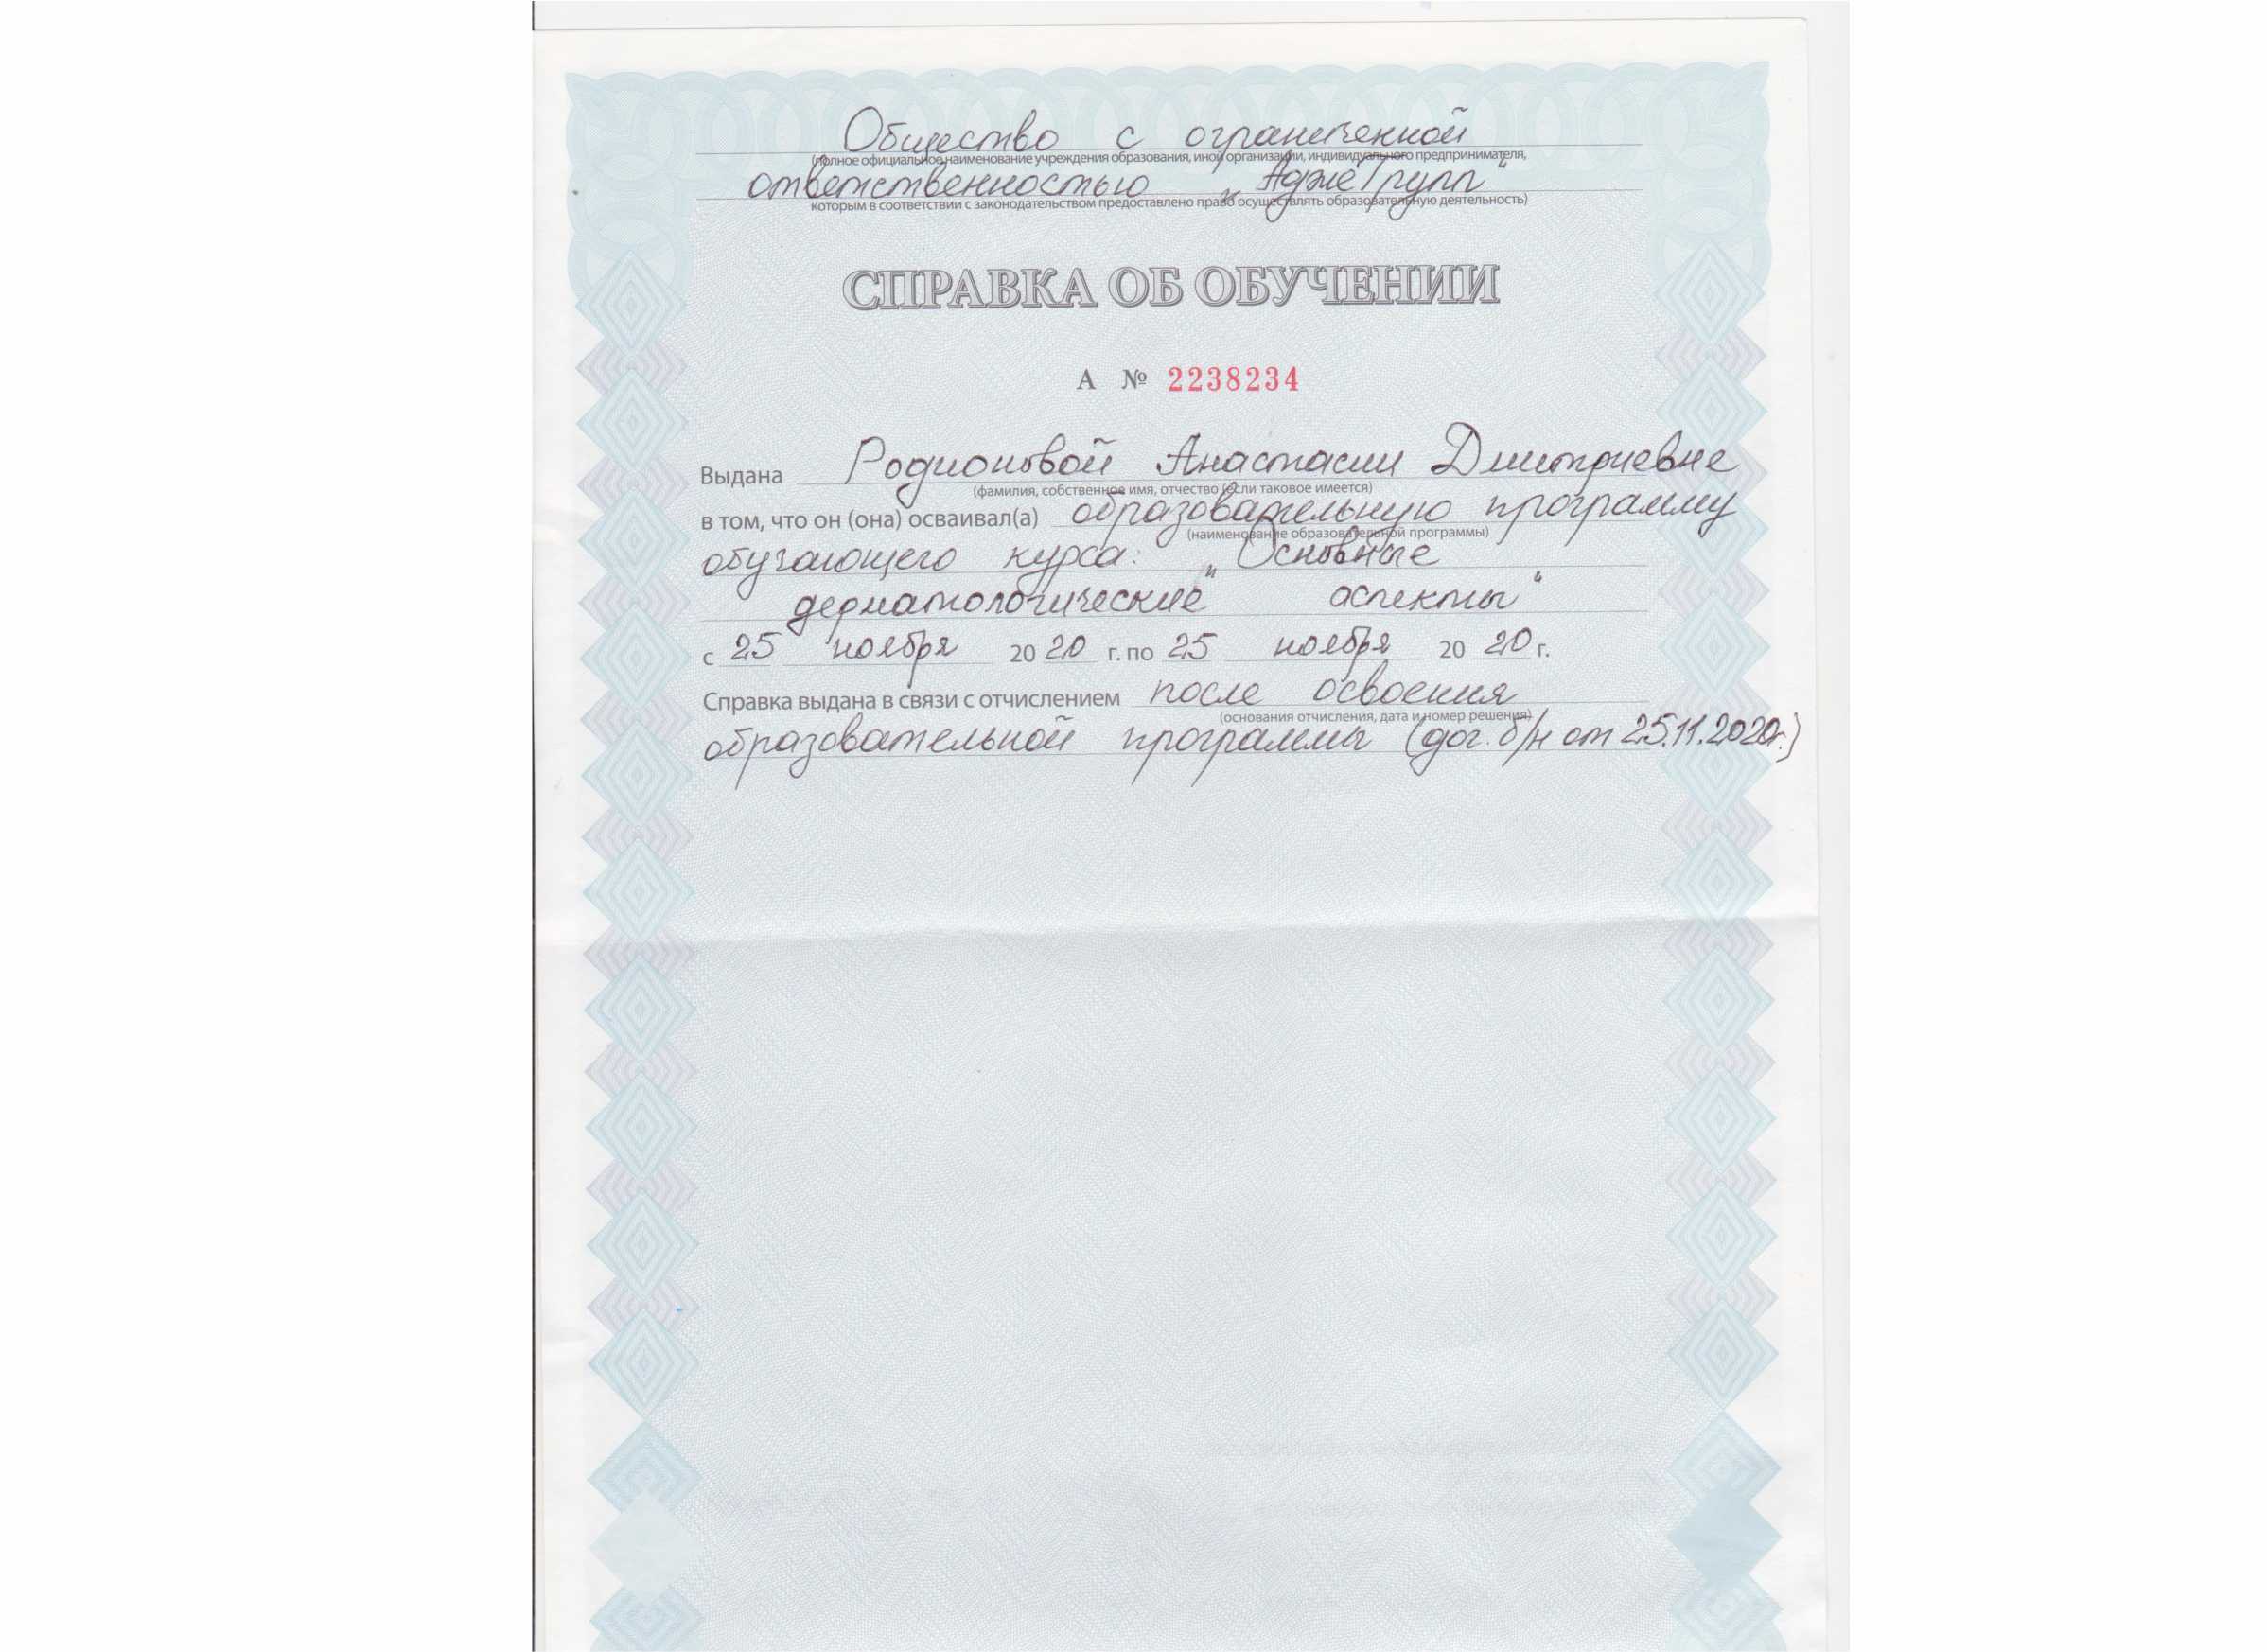 Общество с ограниченной
(полное официальное наименование учреждения образования, иной организации, индивидуального предпринимателя,
ответственностью „АджеГрупп“
которым в соответствии с законодательством предоставлено право осуществлять образовательную деятельность)
СПРАВКА ОБ ОБУЧЕНИИ
А № 2238234
Выдана Родионовой Анастасии Дмитриевне
(фамилия, собственное имя, отчество (если таковое имеется)
в том, что он (она) осваивал(а) образовательную программу
(наименование образовательной программы)
обучающего курса: „Основные
дерматологические аспекты“
с 25 ноября 2020 г. по 25 ноября 2020 г.
Справка выдана в связи с отчислением после освоения
(основания отчисления, дата и номер решения)
образовательной программы (дог. б/н от 25.11.2020г.)